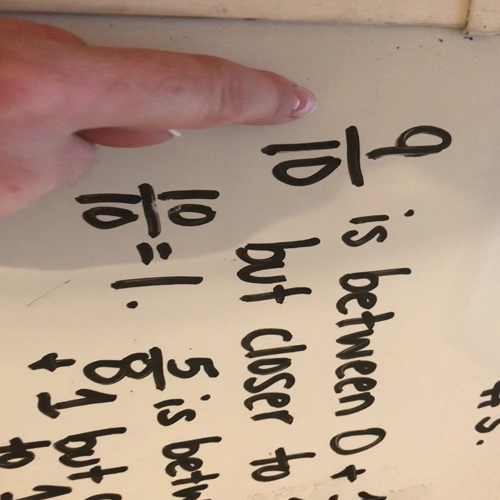 #s.
9/10 is between 0 +
but closer to
10/10 = 1.
5/8 is
+ 1 but
to